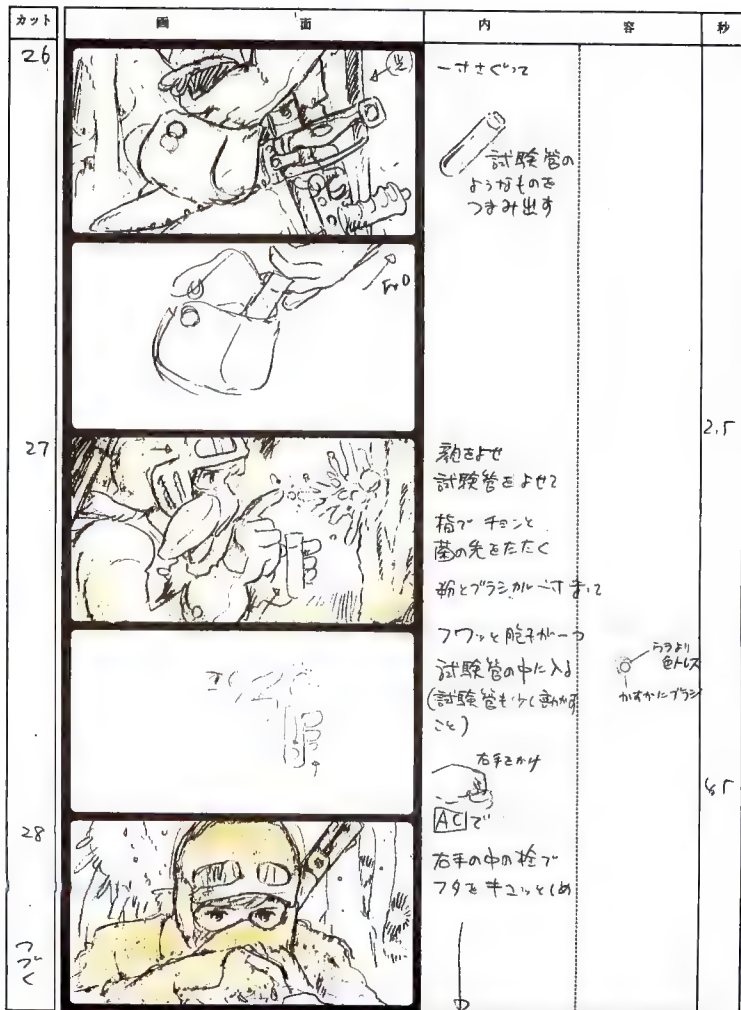 カット
画面
内容
秒
26
一寸さぐって
試験管の
ようなものを
つまみ出す
2.5
27
顔をよせ
試験管をよせて
指で チョンと
菌の先をたたく
粉とブラシカル一寸まって
フワッと胞子が一つ
試験管の中に入る
(試験管も少し動かす
こと)
ウラより
色トレス
かすかにブラシ
右手をかけ
ACで
28
右手の中の栓で
フタをキュッとしめ
つづく